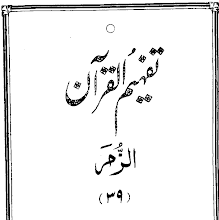 تفہیم القرآن
الزُّمَر
(۳۹)